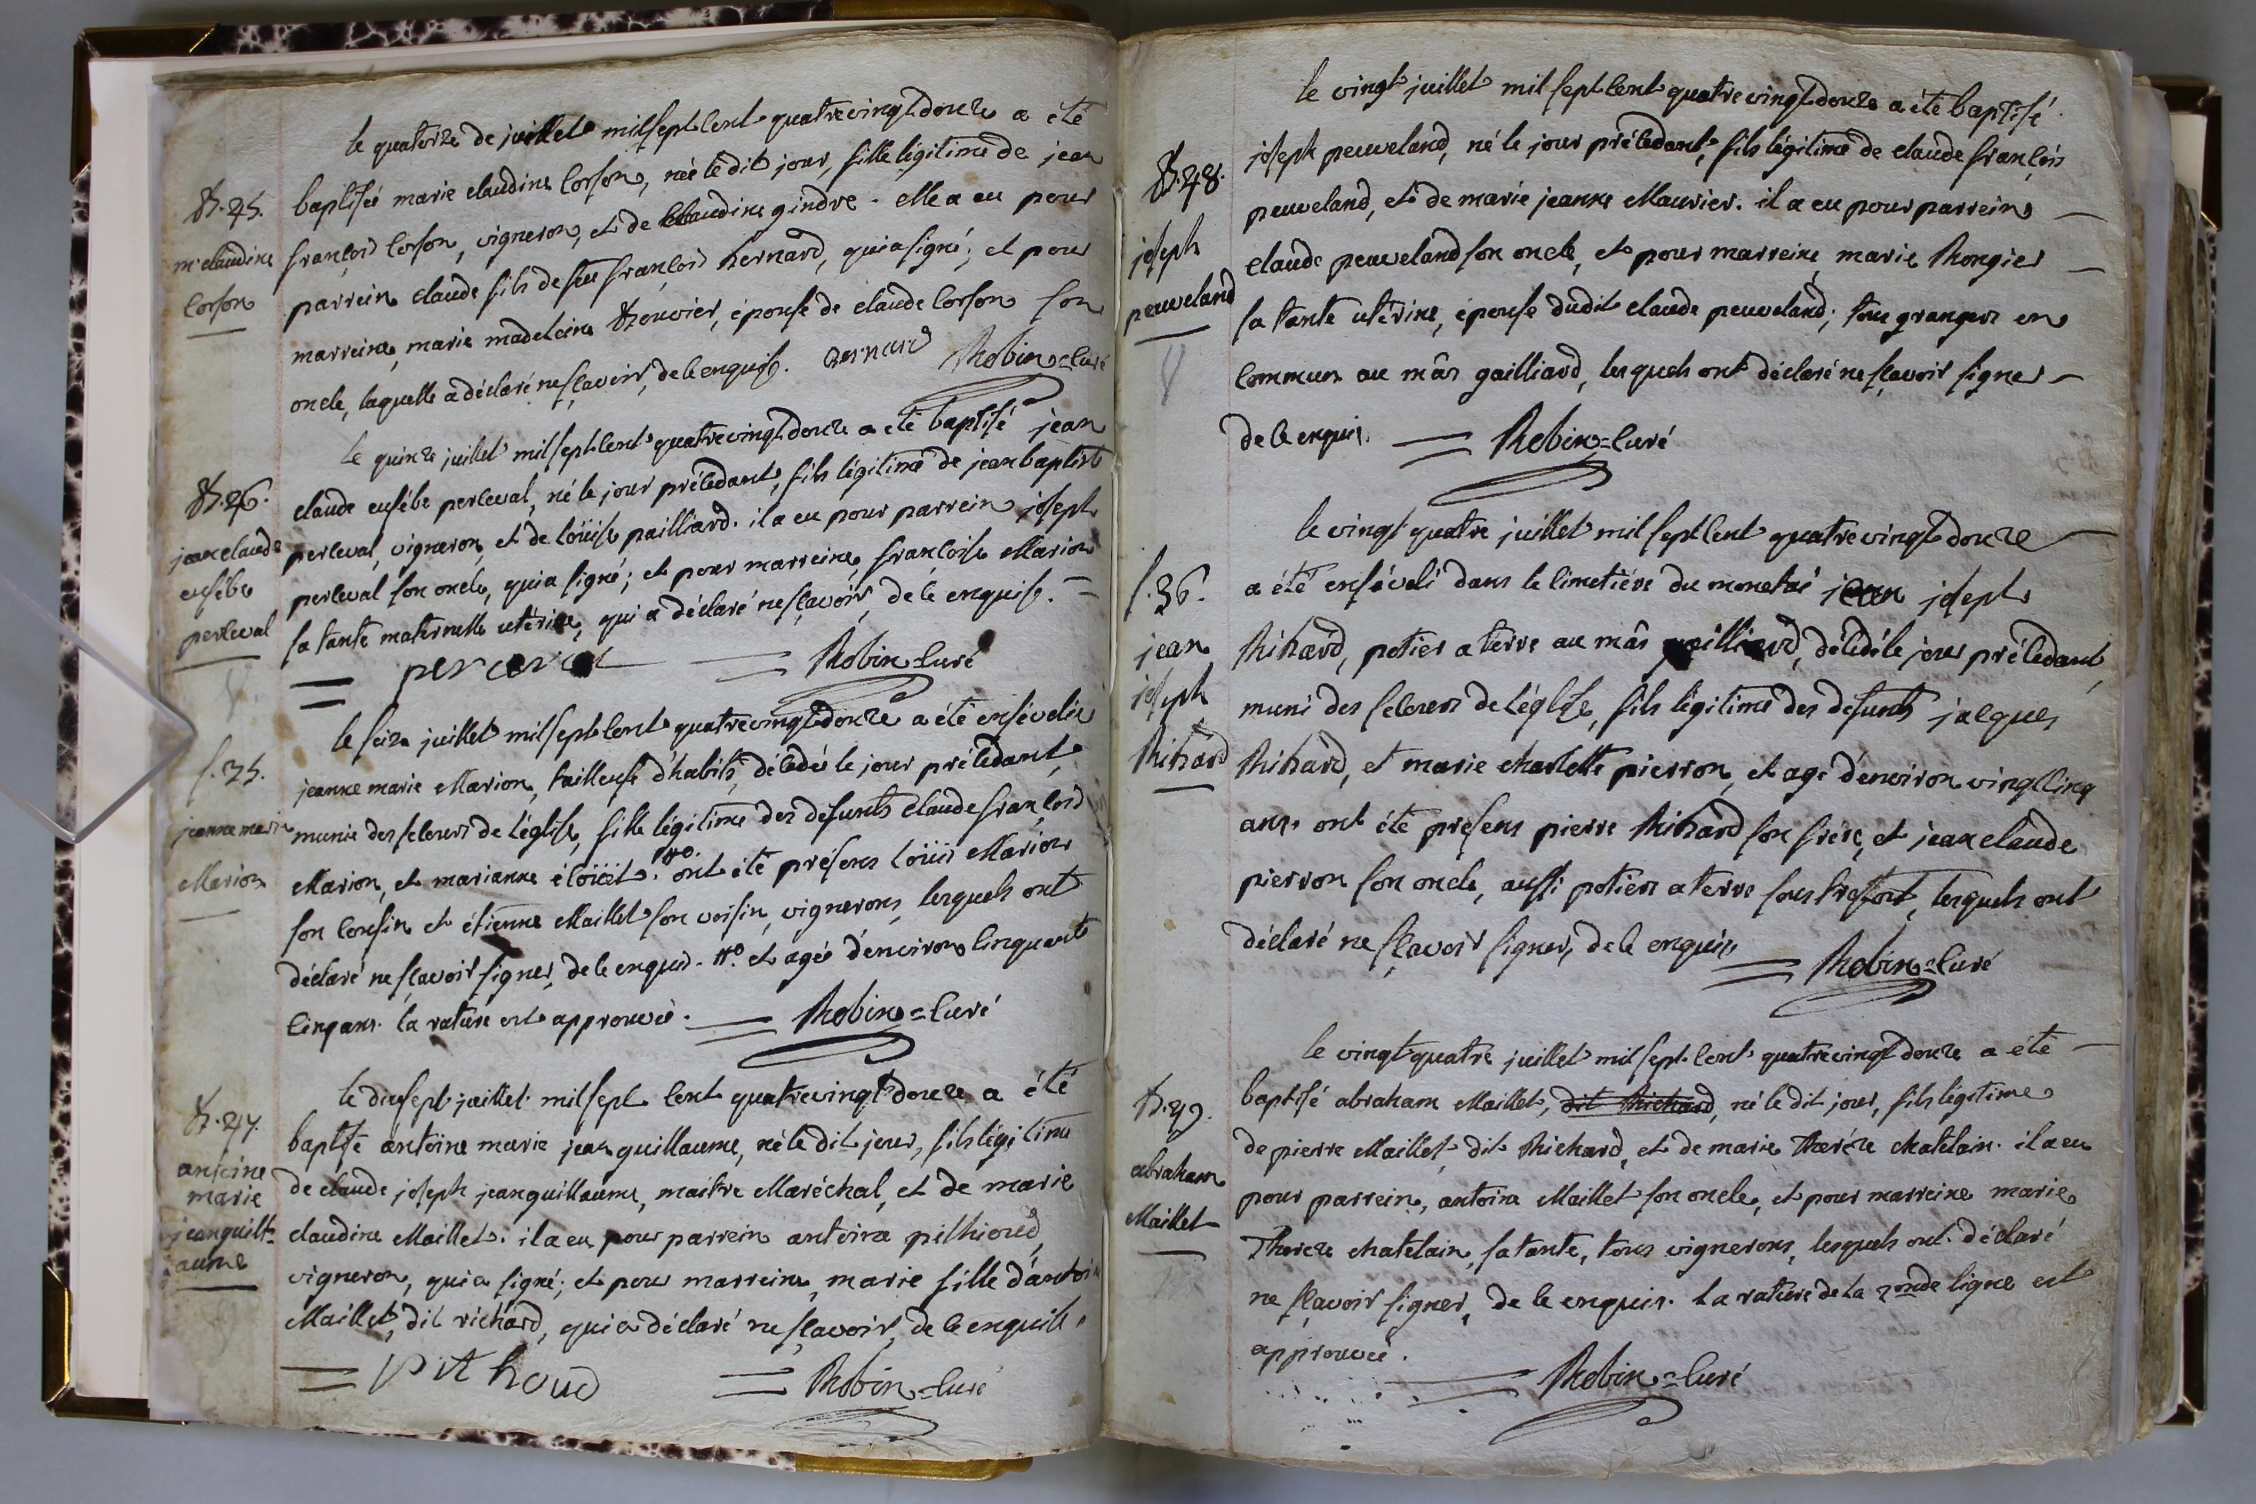 le quatorze de juillet mil sept cent quatrevingt douze a été
B. 45.
m. claudine
Corson
baptisée marie claudine Corson, née le dit jour, fille légitime de jean
françois Corson, vigneron, et de Claudine gindre. elle a eu pour
parrein claude fils de feu françois bernard, qui a signé; et pour
marreine, marie madeleine Bouvier, épouse de claude Corson son
oncle, laquelle a déclaré ne sçavoir, de ce enquise. Bernard Robin = Curé
le quinze juillet mil sept cent quatrevingt douze a été baptisé jean
B. 46.
jean claude
eusébe
perceval
claude eusébe perceval, né le jour précedant, fils légitime de jean baptiste
perceval, vigneron, et de loüise pailliard. il a eu pour parrein joseph
perceval son oncle, qui a signé; et pour marreine, françoise Marion
sa tante maternelle utérine, qui a déclaré ne sçavoir, de ce enquise. =
= perceval = Robin = Curé
le seize juillet mil sept cent quatrevingt douze a été ensévelie
s. 35.
jeanne marie
Marion
jeanne marie Marion, tailleuse d'habits, décédée le jour précedant,
munie des secours de l'église, fille légitime des défunts Claude françois
Marion, et marianne éloüet. ont été présens Loüis Marion
son cousin et étienne Maillet son voisin, vignerons, lesquels ont
déclaré ne sçavoir signer, de ce enquis. et agée d'environ cinquante
cinq ans. la rature est approuvée. = Robin = Curé
le dix sept juillet mil sept cent quatrevingt douze a été
B. 47.
antoine
marie
jeanguill=
aume
baptisé antoine marie jeanguillaume, né le dit jour, fils légitime
de claude joseph jeanguillaume, maitre Maréchal, et de marie
claudine Maillet. il a eu pour parrein antoine pithioud,
vigneron, qui a signé; et pour marreine, marie fille d'antoine
Maillet, dit richard, qui a déclaré ne sçavoir, de ce enquise.
= pithoud = Robin = Curé
le vingt juillet mil sept cent quatrevingt douze a été baptisé
B. 48.
joseph
peuveland
joseph peuveland, né le jour précedant, fils légitime de claude françois
peuveland, et de marie jeanne Maurier. il a eu pour parrein
claude peuveland son oncle, et pour marreine, marie Rongier
sa tante utérine, épouse dudit claude peuveland; tous grangers en
commun au mâs gailliard, lesquels ont déclaré ne sçavoir signer
de ce enquis. = Robin = Curé
le vingt quatre juillet mil sept cent quatrevingt douze
s. 36.
jean
joseph
Richard
a été enséveli dans le cimetiére du monetai jean joseph
Richard, potier a terre au mâs gailliard, décédé le jour précedant,
muni des secours de l'église, fils légitime des défunts jacques
Richard, et marie charlotte pierron, et agé d'environ vingt cinq
ans. ont été présens pierre Richard son frère, et jean claude
pierron son oncle, aussi potiers a terre sous fresfort, lesquels ont
déclaré ne sçavoir signer, de ce enquis = Robin = Curé
le vingt quatre juillet mil sept cent quatrevingt douze a été
B. 49.
abraham
Maillet
baptisé abraham Maillet, dit Richard, né le dit jour, fils légitime
de pierre Maillet, dit Richard, et de marie Theréze chatelain. il a eu
pour parrein, antoine Maillet son oncle, et pour marreine marie
Thereze chatelain, sa tante, tous vignerons, lesquels ont déclaré
ne sçavoir signer, de ce enquis. La rature de la 2onde ligne est
approuvée. = Robin = Curé